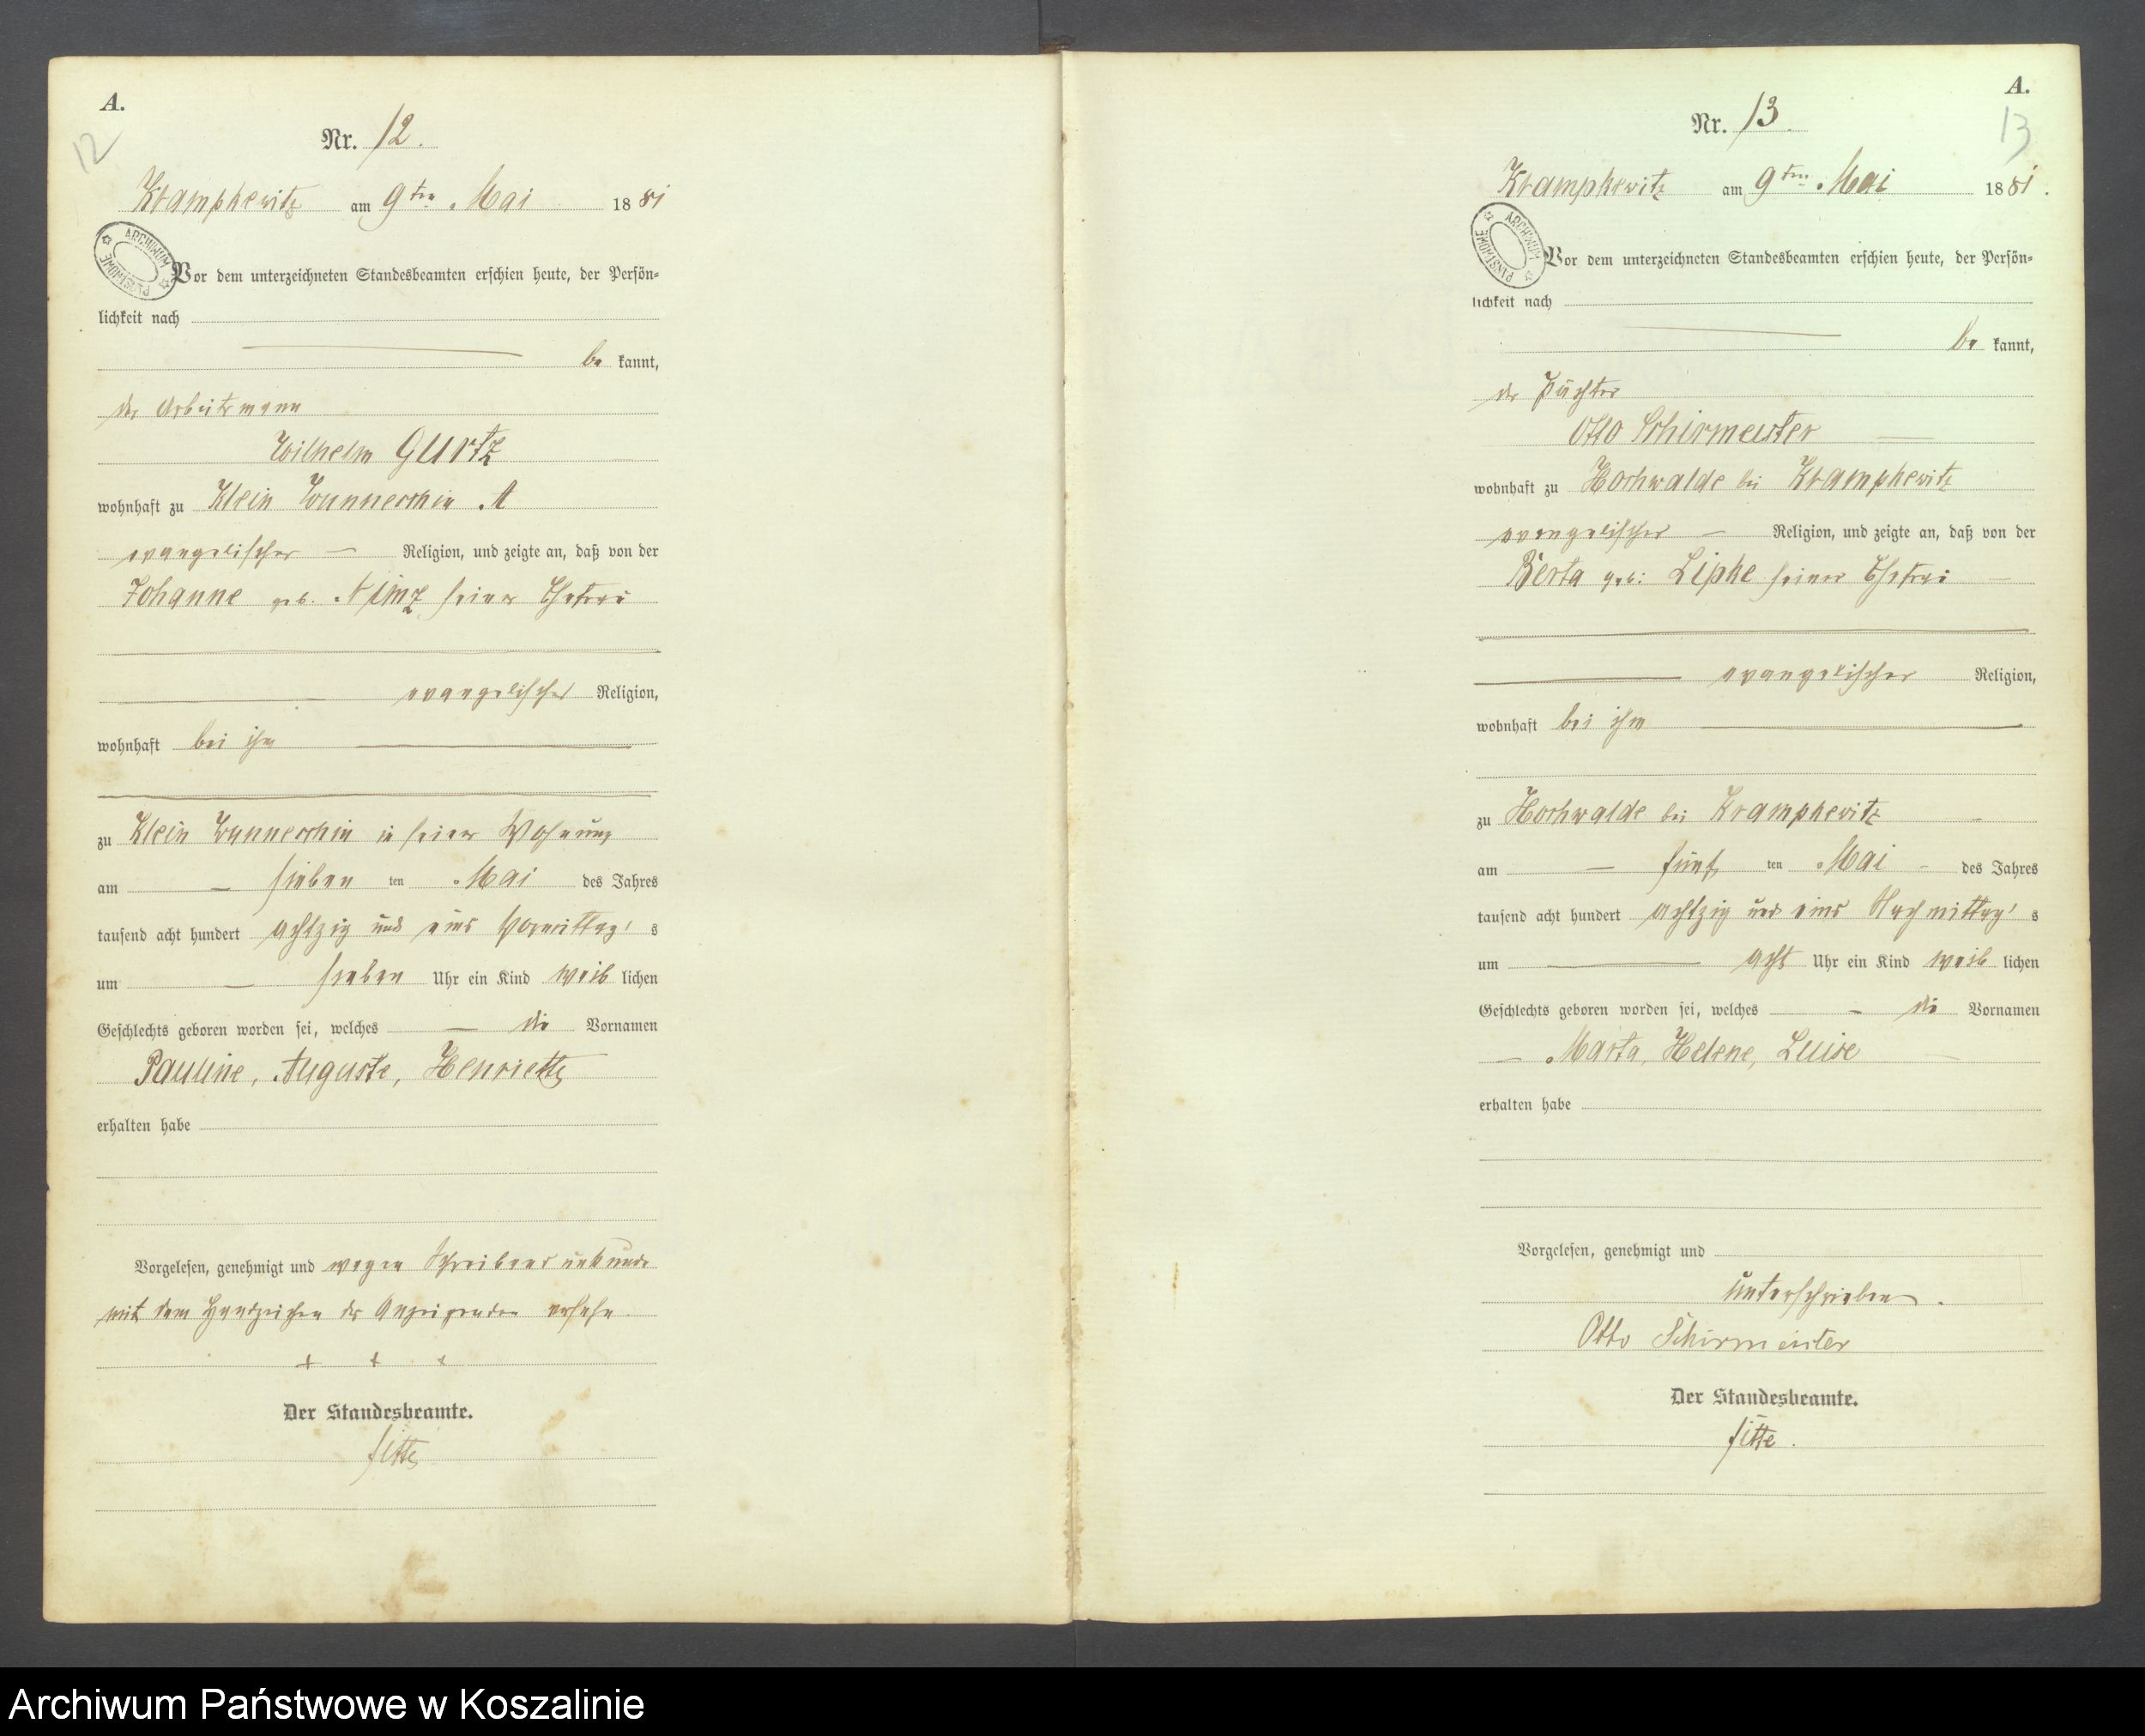 A.
12
Nr. 12.
Kramphewitz am 9ten Mai 1881
ARCHIWUM PAŃSTWOWE
Vor dem unterzeichneten Standesbeamten erschien heute, der Persön-
lichkeit nach
be kannt,
der Arbeitsmann
Wilhelm Gurtz
wohnhaft zu Klein Wunneschin A
evangelischer Religion, und zeigte an, daß von der
Johanne geb. Nimz seiner Ehefrau
evangelischer Religion,
wohnhaft bei ihm
zu Klein Wunneschin in seiner Wohnung
am sieben ten Mai des Jahres
tausend acht hundert achtzig und eins Vormittag's
um sieben Uhr ein Kind weib lichen
Geschlechts geboren worden sei, welches die Vornamen
Pauline, Auguste, Henriette
erhalten habe
Vorgelesen, genehmigt und wegen Schreibens unkunde
mit dem Handzeichen des Anzeigenden versehn.
+ + +
Der Standesbeamte.
A.
13
Nr. 13.
Kramphewitz am 9ten Mai 1881.
ARCHIWUM PAŃSTWOWE
Vor dem unterzeichneten Standesbeamten erschien heute, der Persön-
lichkeit nach
be kannt,
der Pächter
Otto Schirmeister
wohnhaft zu Hochwalde bei Kramphewitz
evangelischer Religion, und zeigte an, daß von der
Berta geb: Liphe seiner Ehefrau
evangelischer Religion,
wohnhaft bei ihm
zu Hochwalde bei Kramphewitz
am fünf ten Mai des Jahres
tausend acht hundert achtzig und eins Nachmittag's
um acht Uhr ein Kind weib lichen
Geschlechts geboren worden sei, welches die Vornamen
Marta, Helene, Luise
erhalten habe
Vorgelesen, genehmigt und
unterschrieben.
Otto Schirmeister
Der Standesbeamte.
Archiwum Państwowe w Koszalinie